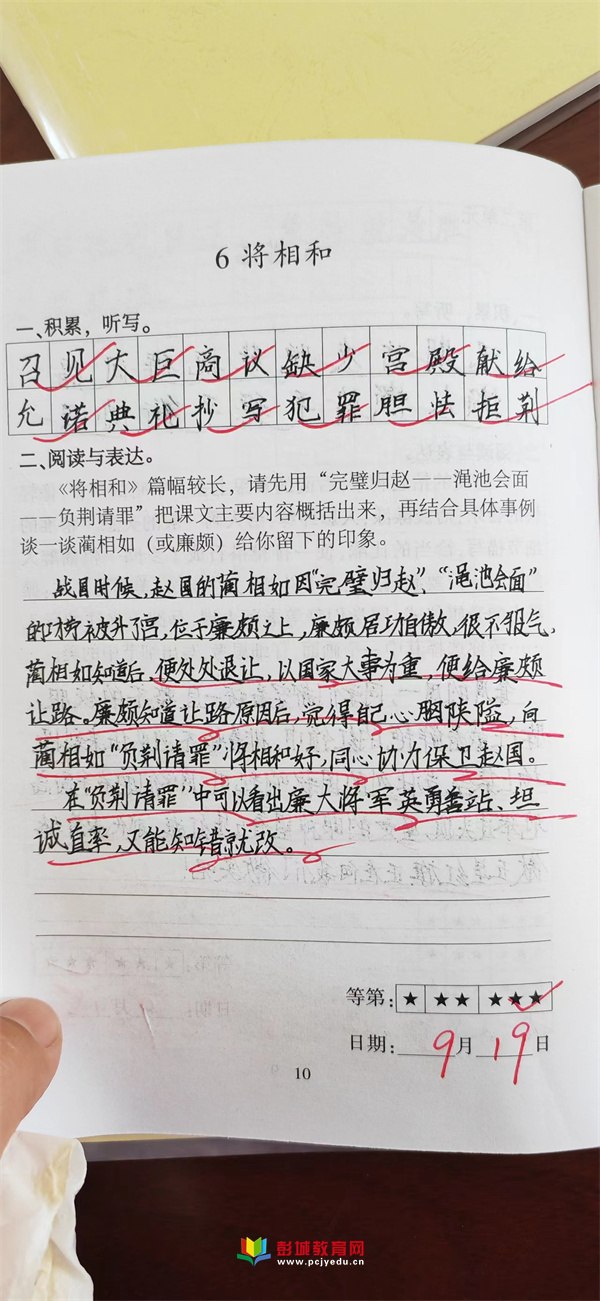 6 将相和
一、积累，听写。
召见大巨商议缺少宫殿献给
允诺典礼抄写犯罪胆怯拒荆
二、阅读与表达。
《将相和》篇幅较长，请先用“完璧归赵——渑池会面
——负荆请罪”把课文主要内容概括出来，再结合具体事例
谈一谈蔺相如（或廉颇）给你留下的印象。
战国时候，赵国的蔺相如因“完璧归赵”、“渑池会面”
的功劳被升了官，位于廉颇之上，廉颇居功自傲，很不服气，
蔺相如知道后，便处处退让，以国家大事为重，便给廉颇
让路。廉颇知道让路原因后，觉得自己心胸狭隘，向
蔺相如“负荆请罪”将相和好，同心协力保卫赵国。
在“负荆请罪”中可以看出廉大将军英勇善站、坦
诚直率，又能知错就改。
等第：★ ★★ ★★★
日期：9月19日
10
彭城教育网
www.pcjyedu.cn